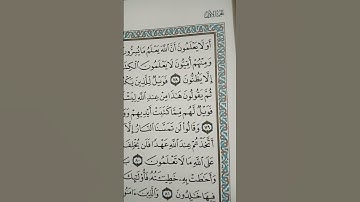 الجزء الأول
أَوَلَا يَعْلَمُونَ أَنَّ ٱللَّهَ يَعْلَمُ مَا
وَمِنْهُمْ أُمِّيُّونَ لَا يَعْلَمُونَ
إِلَّا يَظُنُّونَ ٧٨ فَوَيْلٌ لِّلَّذِينَ
ثُمَّ يَقُولُونَ هَٰذَا مِنْ عِندِ ٱللَّهِ
فَوَيْلٌ لَّهُم مِّمَّا كَتَبَتْ أَيْدِيهِمْ
٧٩ وَقَالُوا۟ لَن تَمَسَّنَا ٱلنَّارُ إِلَّآ
أَتَّخَذْتُمْ عِندَ ٱللَّهِ عَهْدًا فَلَن يُخْلِفَ
عَلَى ٱللَّهِ مَا لَا تَعْلَمُونَ ٨٠
وَأَحَٰطَتْ بِهِۦ خَطِيٓـَٔتُهُۥ
فِيهَا خَٰلِدُونَ ٨١ وَٱلَّذِينَ ءَامَنُوا۟